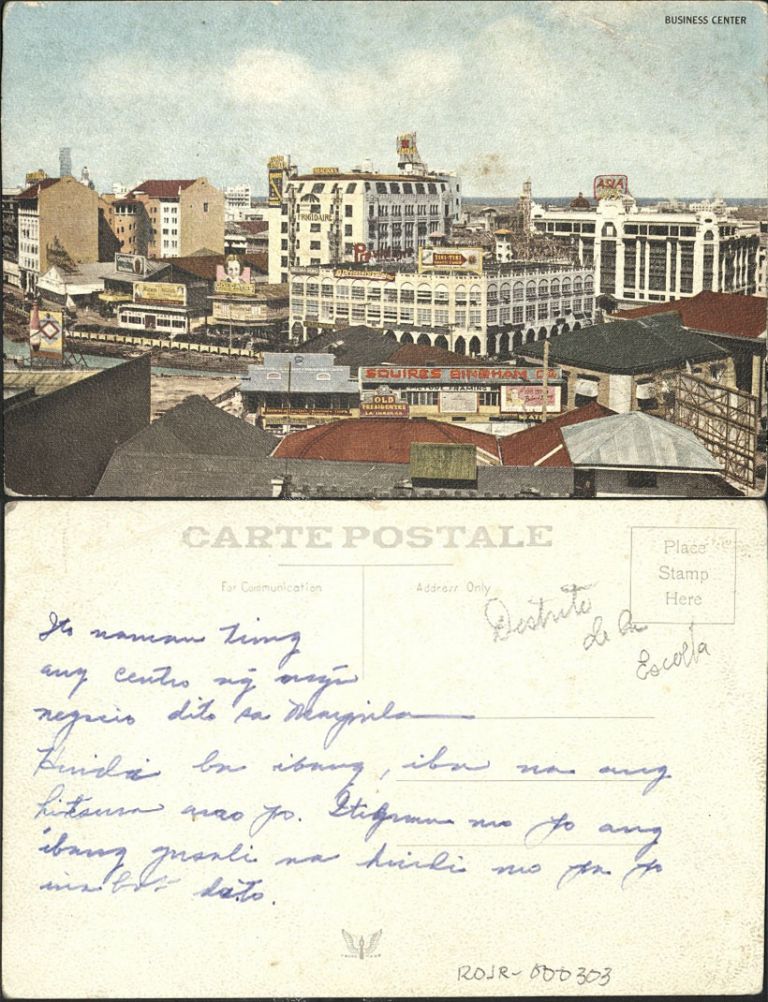 BUSINESS CENTER
FRIGIDAIRE
ASIA
TIKI-TIKI
SQUIRES BINGHAM CO.
PICTURE FRAMING
OLD
PRESIDENTES
CARTE POSTALE
For Communication
Address Only
Place
Stamp
Here
Destrito
de la
Escolta
Ito naman tiong
ang centro ng
negocio dito sa Maynila
Hindi ba ibang, iba na ang
hitsura ano po. mo po ang
ibang gusali na hindi mo pa po
dito.
ROJR-000303